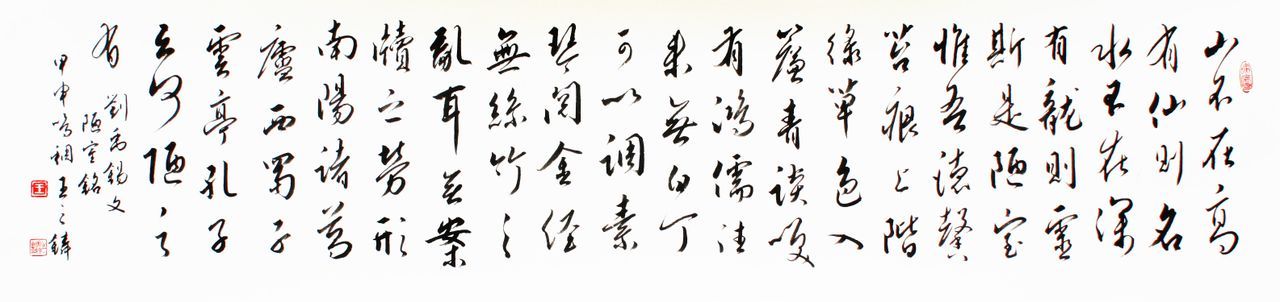 山不在高
有仙則名
水不在深
有龍則靈
斯是陋室
惟吾德馨
苔痕上階
綠草色入
簾青談笑
有鴻儒往
來無白丁
可以調素
琴閱金經
無絲竹之
亂耳無案
牘之勞形
南陽諸葛
廬西蜀子
雲亭孔子
云何陋之
有
劉禹錫文
陋室銘
甲申鳴蜩王之